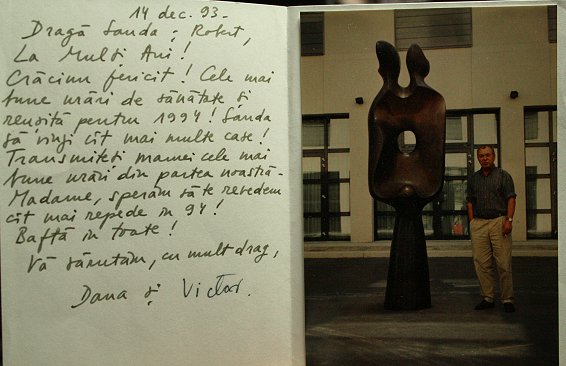 14 dec. 93.-
Dragă Sanda și Robert,
La Mulți Ani!
Crăciun fericit! Cele mai
bune urări de sănătate și
reușită pentru 1994! Sanda
să vinzi cît mai multe case!
Transmiteți mamei cele mai
bune urări din partea noastră-
Madame, sperăm să te revedem
cît mai repede în 94!
Baftă în toate!
Vă sărutăm, cu mult drag,
Dana și Victor.